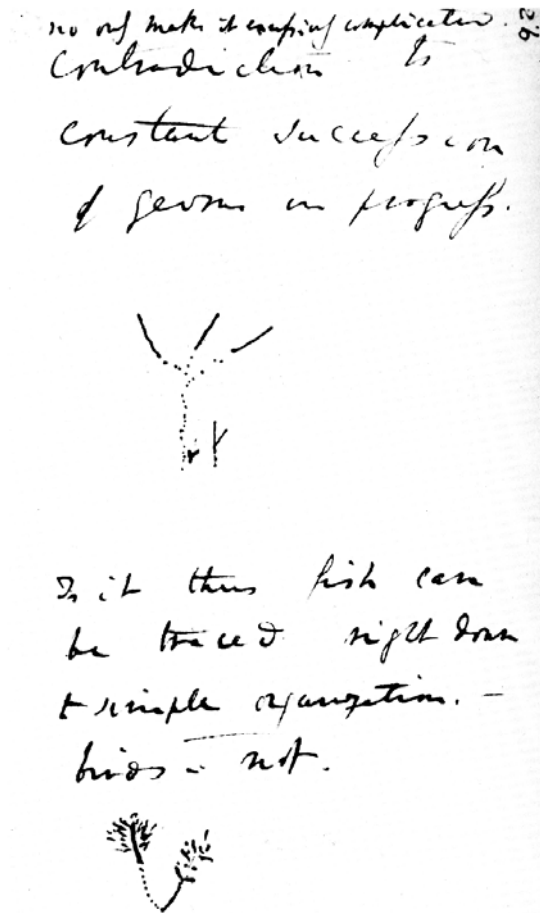 no only makes it excessively complicated. 26
Contradiction to
constant succession
of germs in progress.
Is it thus fish can
be traced right down
to simple organization. –
birds – not.